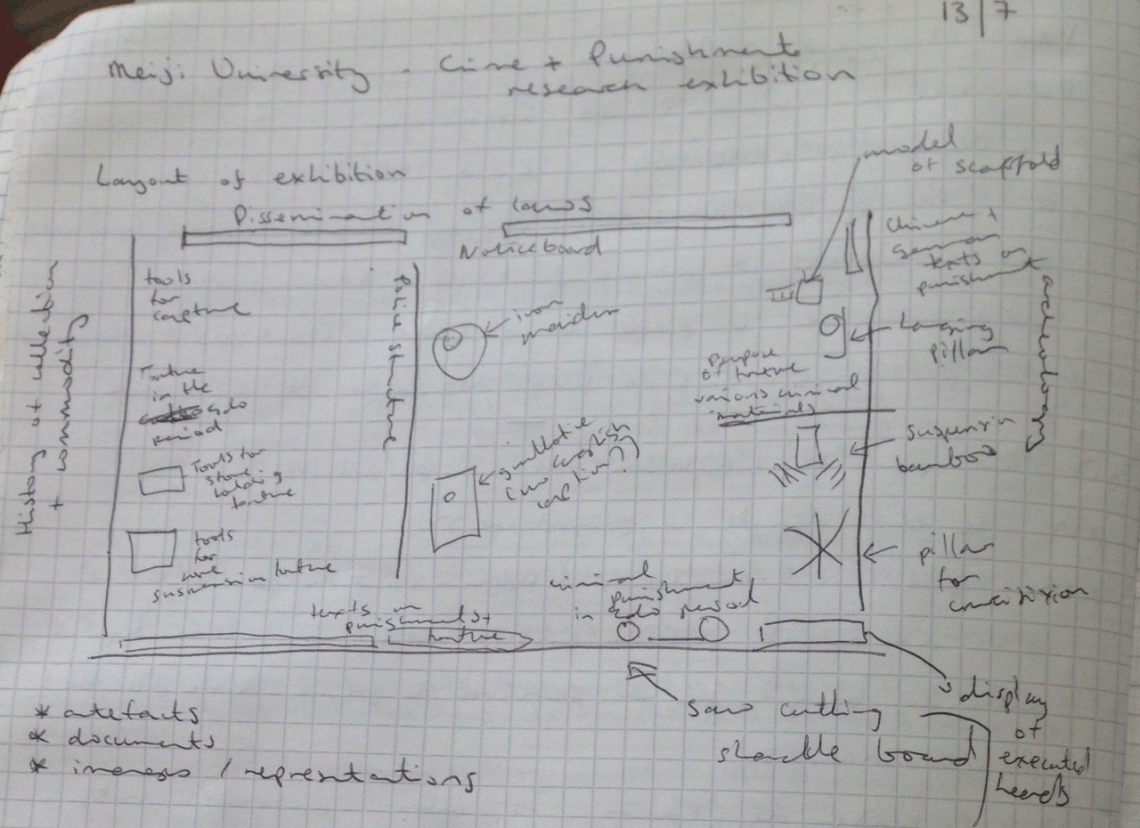 13/7
Meiji University - Crime + Punishment
research exhibition
Layout of exhibition
model
of scaffold
Dissemination of laws
Noticeboard
History of collection
+ commodity
tools
for
capture
Torture
in the
Edo
period
Tools for
stone
holding
torture
tools
for
suspension torture
Police structure
iron
maiden
guillotine
(no english
caption?)
Purpose
of torture
various criminal
materials
Chinese +
German
texts on
punishment
archaeology
hanging
pillar
suspension
bamboo
pillar
for
crucifixion
texts on
punishment +
torture
criminal
punishment
in Edo period
saw cutting
shackle board
display
of
executed
heads
* artefacts
* documents
* images / representations